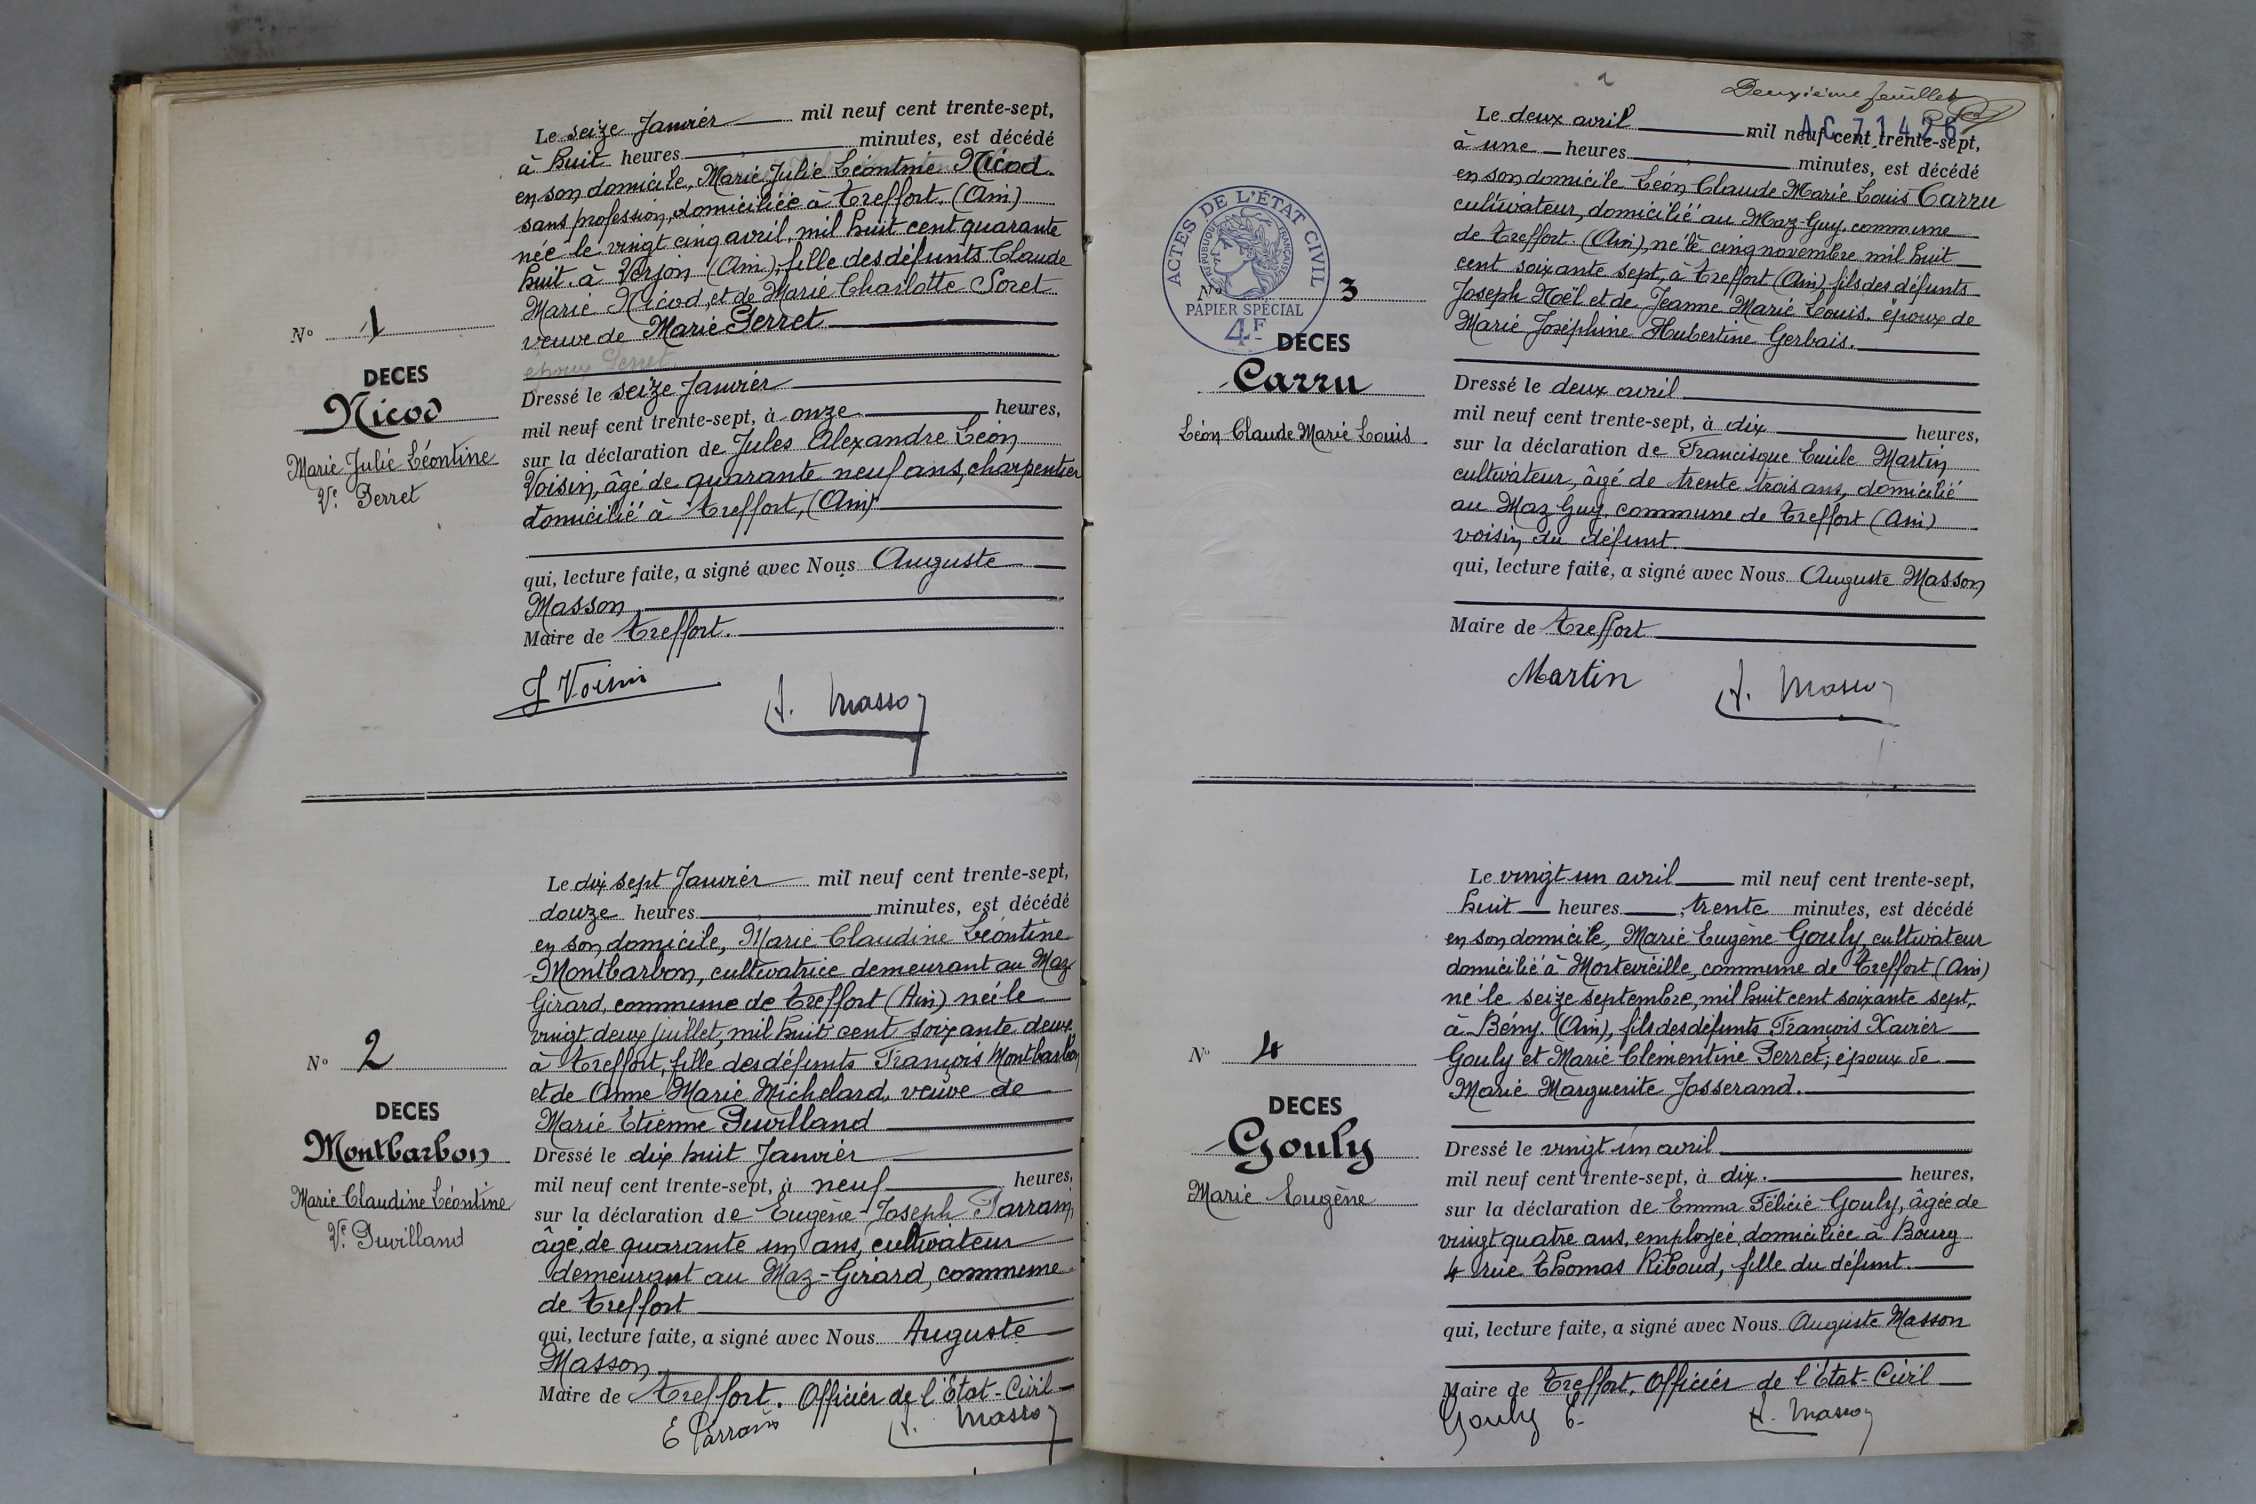 Le seize Janvier mil neuf cent trente-sept,
à huit heures, minutes, est décédé
en son domicile, Marie Julie Léontine Nicod.
sans profession, domiciliée à Treffort. (Ain)
née le vingt cinq avril, mil huit cent quarante
huit. à Verjon (Ain), fille des défunts Claude
Marie Nicod, et de Marie Charlotte Soret
veuve de Marie Perret
époux Perret
N° 1
DECES
Nicod
Marie Julie Léontine
Ve Perret
Dressé le seize Janvier
mil neuf cent trente-sept, à onze heures,
sur la déclaration de Jules Alexandre Léon
Voisin, âgé de quarante neuf ans, charpentier
domicilié à Treffort, (Ain)
qui, lecture faite, a signé avec Nous Auguste
Masson
Maire de Treffort.
J Voisin
A. Masson
Le dix sept Janvier mil neuf cent trente-sept,
douze heures, minutes, est décédé
en son domicile, Marie Claudine Léontine
Montbarbon, cultivatrice demeurant au Maz
Girard, commune de Treffort (Ain) née le
vingt deux juillet, mil huit cent soixante deux
à Treffort, fille des défunts François Montbarbon
et de Anne Marie Michelard, veuve de
Marie Etienne Puvilland
N° 2
DECES
Montbarbon
Marie Claudine Léontine
Ve Puvilland
Dressé le dix huit Janvier
mil neuf cent trente-sept, à neuf heures,
sur la déclaration de Eugène Joseph Parrain,
âgé de quarante un ans, cultivateur
demeurant au Maz-Girard, commune
de Treffort
qui, lecture faite, a signé avec Nous Auguste
Masson
Maire de Treffort. Officier de l'Etat-Civil
E Parrain
A. Masson
2
Deuxième feuillet
AC 71426
Le deux avril mil neuf cent trente-sept,
à une heures, minutes, est décédé
en son domicile Léon Claude Marie Louis Carru
cultivateur, domicilié au Maz-Guy, commune
de Treffort. (Ain), né le cinq novembre mil huit
cent soixante sept, à Treffort (Ain), fils des défunts
Joseph Noël et de Jeanne Marie Louis. époux de
Marie Joséphine Hubertine Gerbais.
ACTES DE L'ÉTAT CIVIL
RÉPUBLIQUE FRANÇAISE
PAPIER SPÉCIAL
4F
N° 3
DECES
Carru
Léon Claude Marie Louis
Dressé le deux avril
mil neuf cent trente-sept, à dix heures,
sur la déclaration de Francisque Emile Martin
cultivateur, âgé de trente trois ans, domicilié
au Maz-Guy, commune de Treffort (Ain)
voisin du défunt.
qui, lecture faite, a signé avec Nous Auguste Masson
Maire de Treffort
Martin
A. Masson
Le vingt un avril mil neuf cent trente-sept,
huit heures, trente minutes, est décédé
en son domicile, Marie Eugène Gouly, cultivateur
domicilié à Mortevieille, commune de Treffort (Ain)
né le seize septembre, mil huit cent soixante sept,
à Bény. (Ain), fils des défunts François Xavier
Gouly et Marie Clémentine Perret; époux de
Marie Marguerite Josserand.
N° 4
DECES
Gouly
Marie Eugène
Dressé le vingt un avril
mil neuf cent trente-sept, à dix. heures,
sur la déclaration de Emma Félicie Gouly, âgée de
vingt quatre ans, employée, domiciliée à Bourg
4 rue Thomas Riboud, fille du défunt.
qui, lecture faite, a signé avec Nous Auguste Masson
Maire de Treffort, Officier de l'Etat-Civil
Gouly E.
A. Masson